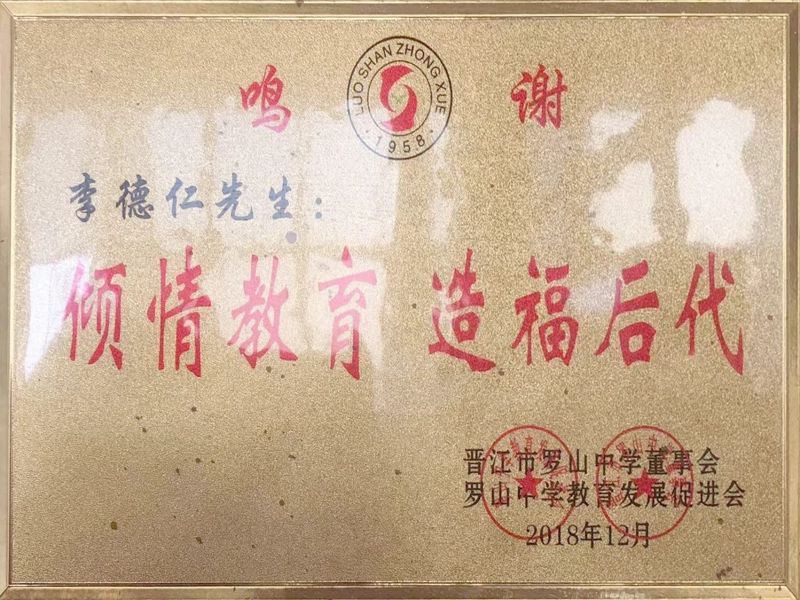 鸣 谢
LUO SHAN ZHONG XUE
·1958·
李德仁先生：
倾情教育 造福后代
晋江市罗山中学董事会
罗山中学教育发展促进会
2018年12月